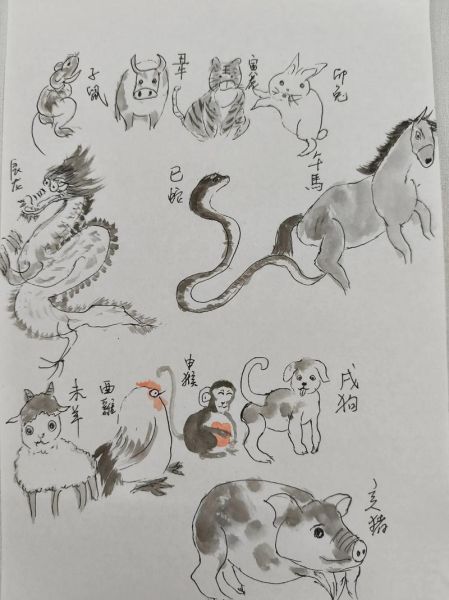 子鼠
丑牛
寅虎
卯兔
辰龙
巳蛇
午馬
未羊
酉雞
申猴
戌狗
亥猪